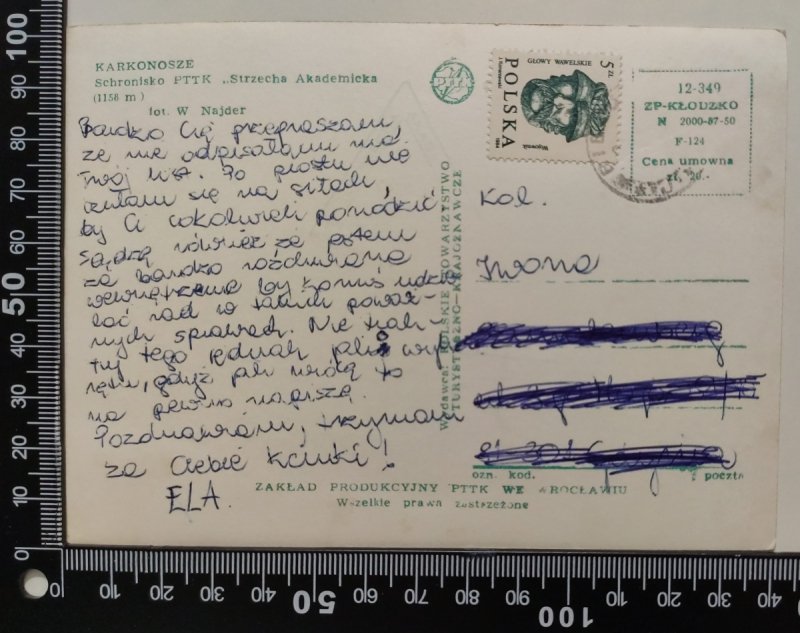 KARKONOSZE
Schronisko PTTK „Strzecha Akademicka
(1158 m)
fot. W Najder
Bardzo Cię przepraszam,
że nie odpisałam na
Twój list. Po prostu nie
czułam się na siłach,
by Ci cokolwiek poradzić
Sądzę również że jestem
za bardzo rozdwojona
wewnętrznie by komuś udzie
lać rad w takich poważ-
nych sprawach. Nie trak-
tuj tego jednak jako wykrę
nęłam, gdyż jak widzę to
na pewno napiszę.
Pozdrawiam, trzymam
za Ciebie kciuki!
ELA.
Wydawca: POLSKIE TOWARZYSTWO
TURYSTYCZNO-KRAJOZNAWCZE
GŁOWY WAWELSKIE
5 ZŁ
POLSKA
Wąsownik
1984
12-349
ZP-KŁODZKO
N 2000-87-50
F-124
Cena umowna
zł, 20.-
Kol.
Iwona
ozn. kod. poczta
ZAKŁAD PRODUKCYJNY PTTK WE WROCŁAWIU
Wszelkie prawa zastrzeżone
100
90
80
70
60
50
40
30
20
10
0
0
10
20
30
40
50
60
70
80
90
100
10
20
30
40